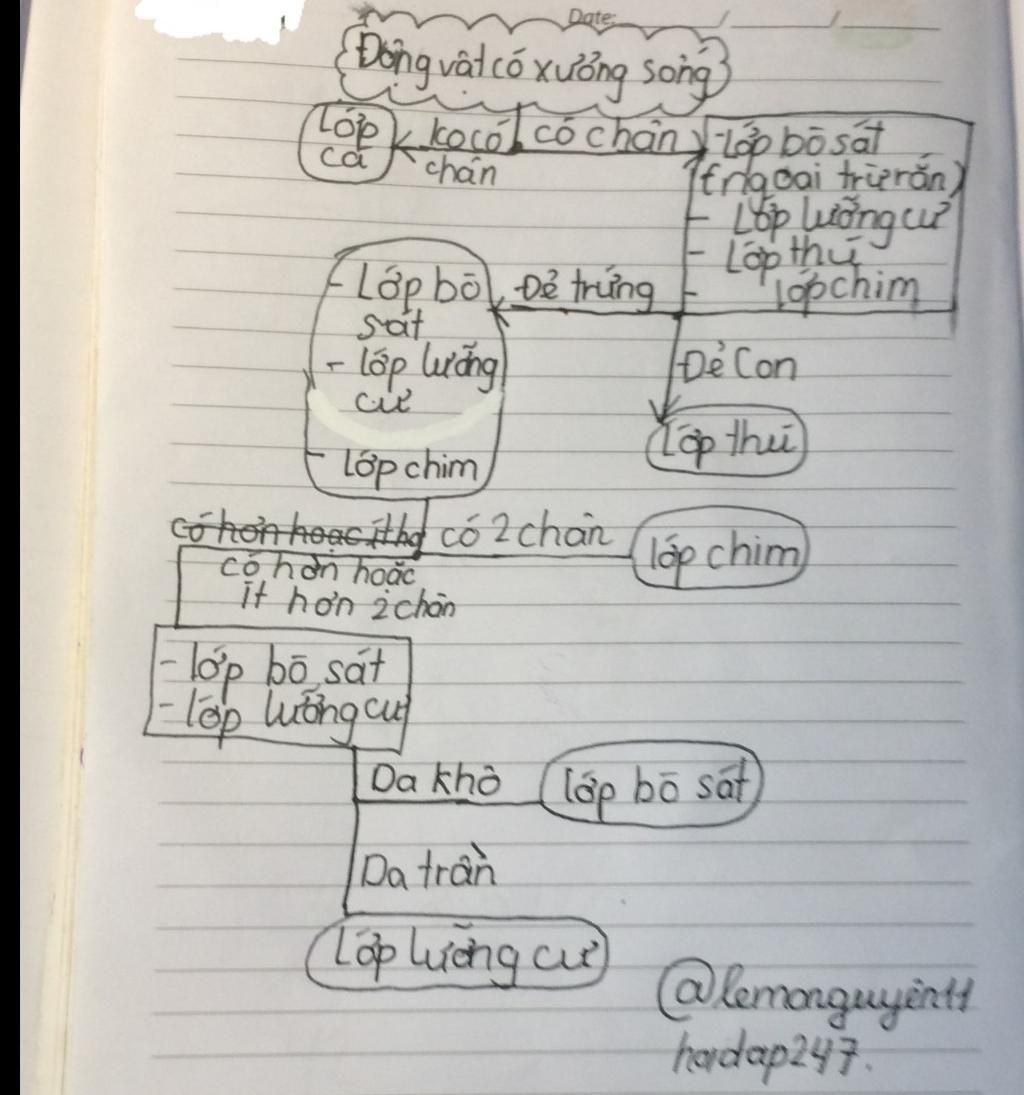 Date: / /
Động vật có xưởng sống
Lớp
cá
ko có
chân
có chân
- Lớp bò sát
(ngoại trừ rắn)
- Lớp lưỡng cư
- Lớp thú
- lớp chim
- Lớp bò
sát
- lớp lưỡng
cư
- lớp chim
Đẻ trứng
Đẻ Con
Lớp thú
có hơn hoặc ít hơ
có 2 chân
lớp chim
có hơn hoặc
ít hơn 2 chân
- lớp bò sát
- lớp lưỡng cư
Da khô
lớp bò sát
Da trần
Lớp lưỡng cư
@lemonguyen11
hoidap247.